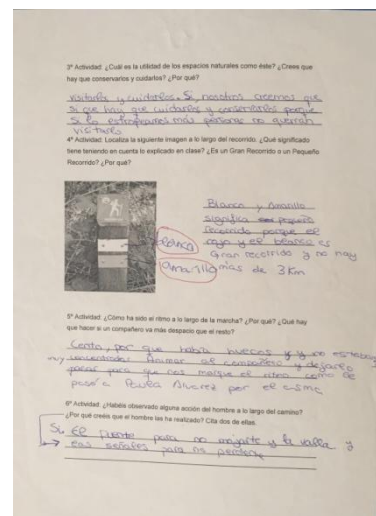 3ª Actividad: ¿Cuál es la utilidad de los espacios naturales como éste? ¿Crees que
hay que conservarlos y cuidarlos? ¿Por qué?
visitarlos y cuidarlos. Si, nosotros creemos que
si que hay que cuidarlos y conservarlos porque
si lo estropeamos más personas no querrán
visitarlo
4ª Actividad: Localiza la siguiente imagen a lo largo del recorrido. ¿Qué significado
tiene teniendo en cuenta lo explicado en clase? ¿Es un Gran Recorrido o un Pequeño
Recorrido? ¿Por qué?
Blanco y Amarillo
significa pequeño
recorrido porque el
rojo y el blanco es
Gran recorrido y no hay
mas de 3 Km
blanco
amarillo
5ª Actividad: ¿Cómo ha sido el ritmo a lo largo de la marcha? ¿Por qué? ¿Qué hay
que hacer si un compañero va más despacio que el resto?
Lento, por que había huecos y no
muy concentrados. Animar al compañero y dejarlo
pasar para que nos marque el ritmo como le
paso a Paula Alvarez por el asma
6ª Actividad: ¿Habéis observado alguna acción del hombre a lo largo del camino?
¿Por qué creéis que el hombre las ha realizado? Cita dos de ellas.
Si, El puente para no mojarte y la valla y
las señales para no perderte